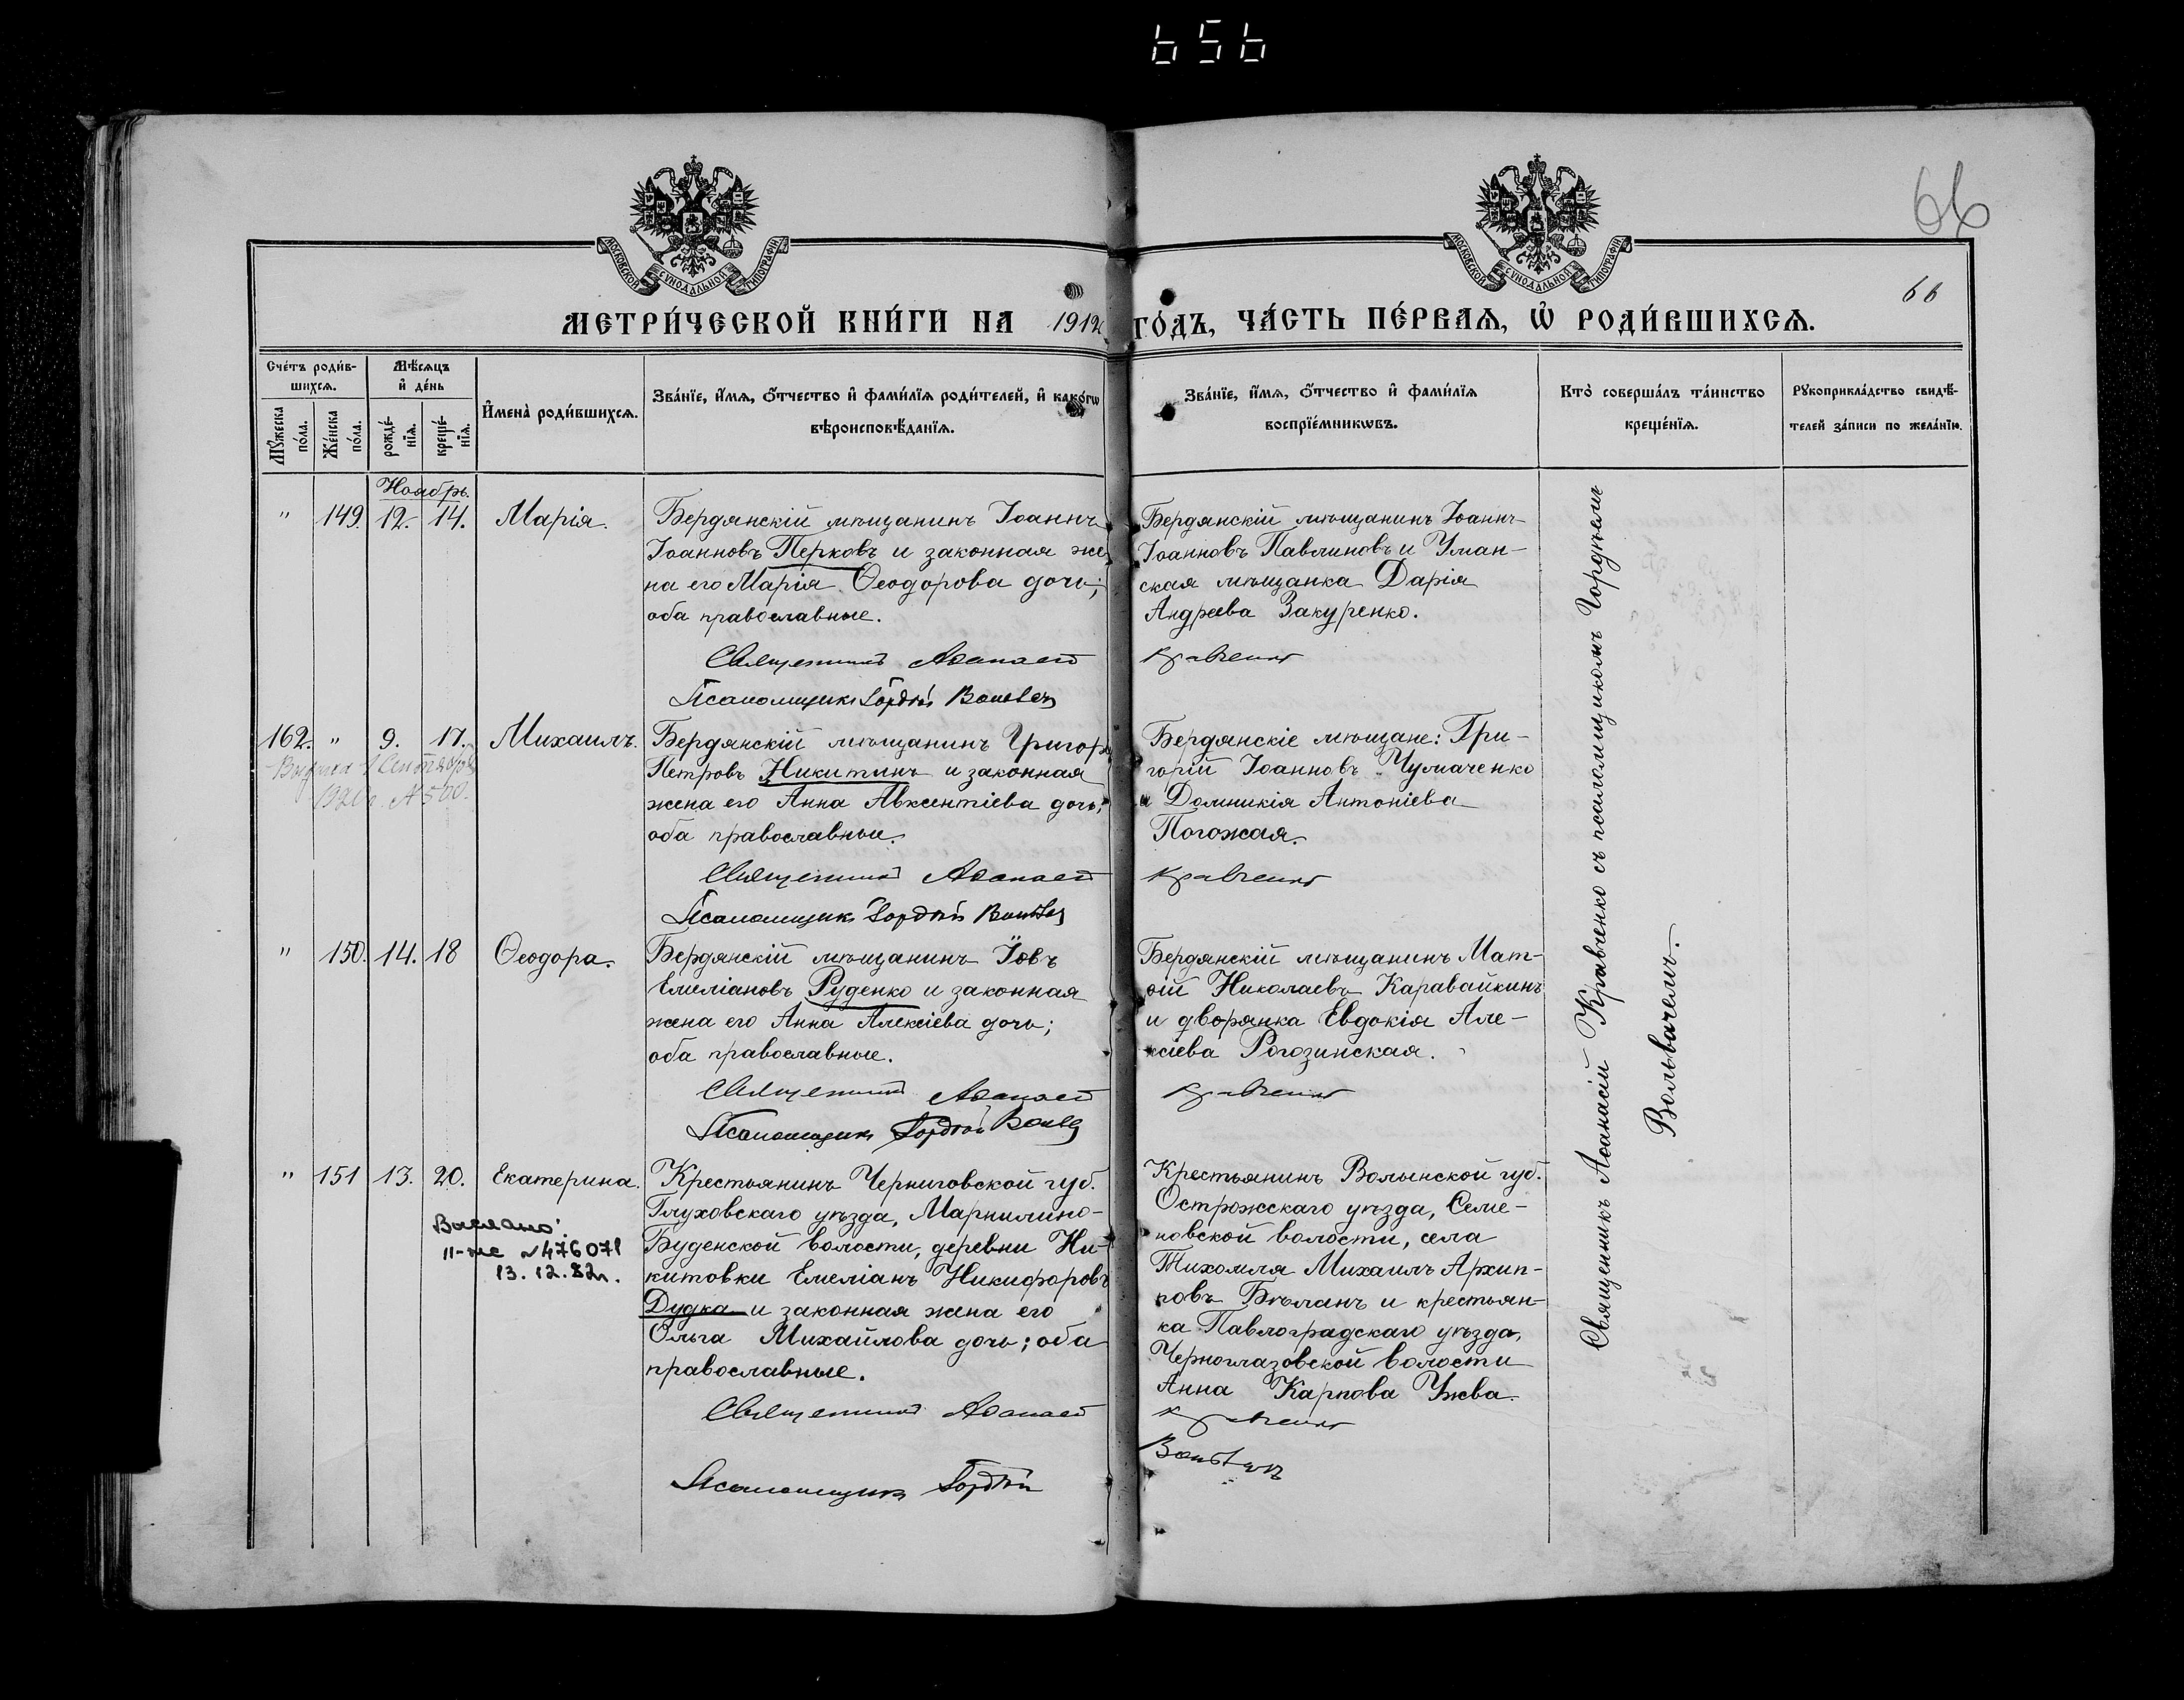 656
66
МОСКОВСКОЙ СѴНОДАЛЬНОЙ ТИПОГРАФІИ
МОСКОВСКОЙ СѴНОДАЛЬНОЙ ТИПОГРАФІИ
66
МЕТРИ́ЧЕСКОЙ КНИ́ГИ НА 1912 ГО́ДЪ, ЧА́СТЬ ПЕ́РВАѦ, Ѡ҆ РОДИ́ВШИХСѦ.
Сче́тъ роди́в-
шихсѧ.
Мѣ́сѧцъ
и҆ де́нь
Мꙋ́жеска
по́ла.
Же́нска
по́ла.
рожде́-
нїѧ.
креще́-
нїѧ.
И҆мена̀ роди́вшихсѧ.
Зва́нїе, и҆́мѧ, ѻ҆́тчество и҆ фами́лїѧ роди́телей, и҆ како́гѡ
вѣроисповѣ́данїѧ.
Зва́нїе, и҆́мѧ, ѻ҆́тчество и҆ фами́лїѧ
воспрїе́мникѡвъ.
Кто̀ соверша́лъ та́инство
креще́нїѧ.
Рꙋкоприкла́дство свидѣ́-
телей за́писи по жела́нїю.
Ноябрь.
" 149. 12. 14. Марія.
Бердянскій мѣщанинъ Іоаннъ
Іоанновъ Перковъ и законная же
на его Марія Ѳеодорова дочь;
оба православные.
Священникъ Аѳанасій
Псаломщикъ Гордѣй Вольвачъ
Бердянскій мѣщанинъ Іоаннъ
Іоанновъ Павлиновъ и Уман-
ская мѣщанка Дарія
Андреева Закуренко.
Кравченко
162. " 9. 17. Михаилъ.
Сентября
№ 500.
Бердянскій мѣщанинъ Григорій
Петровъ Никитинъ и законная
жена его Анна Авксентіева дочь;
оба православные.
Священникъ Аѳанасій
Псаломщикъ Гордѣй Вольвачъ
Бердянскіе мѣщане: Гри-
горій Іоанновъ Чумаченко
и Домникія Антоніева
Погожая.
Кравченко
" 150. 14. 18 Ѳеодора.
Бердянскій мѣщанинъ Іовъ
Емеліановъ Руденко и законная
жена его Анна Алексіева дочь;
оба православные.
Священникъ Аѳанасій
Псаломщикъ Гордѣй Вольвачъ
Бердянскій мѣщанинъ Мат-
ѳій Николаевъ Каравайкинъ
и дворянка Евдокія Але-
ксіева Рогозинская.
Кравченко
" 151 13. 20. Екатерина.
Выслано:
II-ЖС №476071
13.12.82г.
Крестьянинъ Черниговской губ.
Глуховскаго уѣзда, Марчилино-
Буденской волости, деревни Ни-
китовки Емеліанъ Никифоровъ
Дудка и законная жена его
Ольга Михайлова дочь; оба
православные.
Священникъ Аѳанасій
Псаломщикъ Гордѣй
Крестьянинъ Волынской губ.
Острожскаго уѣзда, Семе-
новской волости, села
Тихомля Михаилъ Архип-
повъ Бѣланъ и крестьян-
ка Павлоградскаго уѣзда,
Черноглазовской волости
Анна Карпова Ужва.
Кравченко
Вольвачъ
Священникъ Аѳанасій Кравченко съ псаломщикомъ Гордѣемъ
Вольвачемъ.